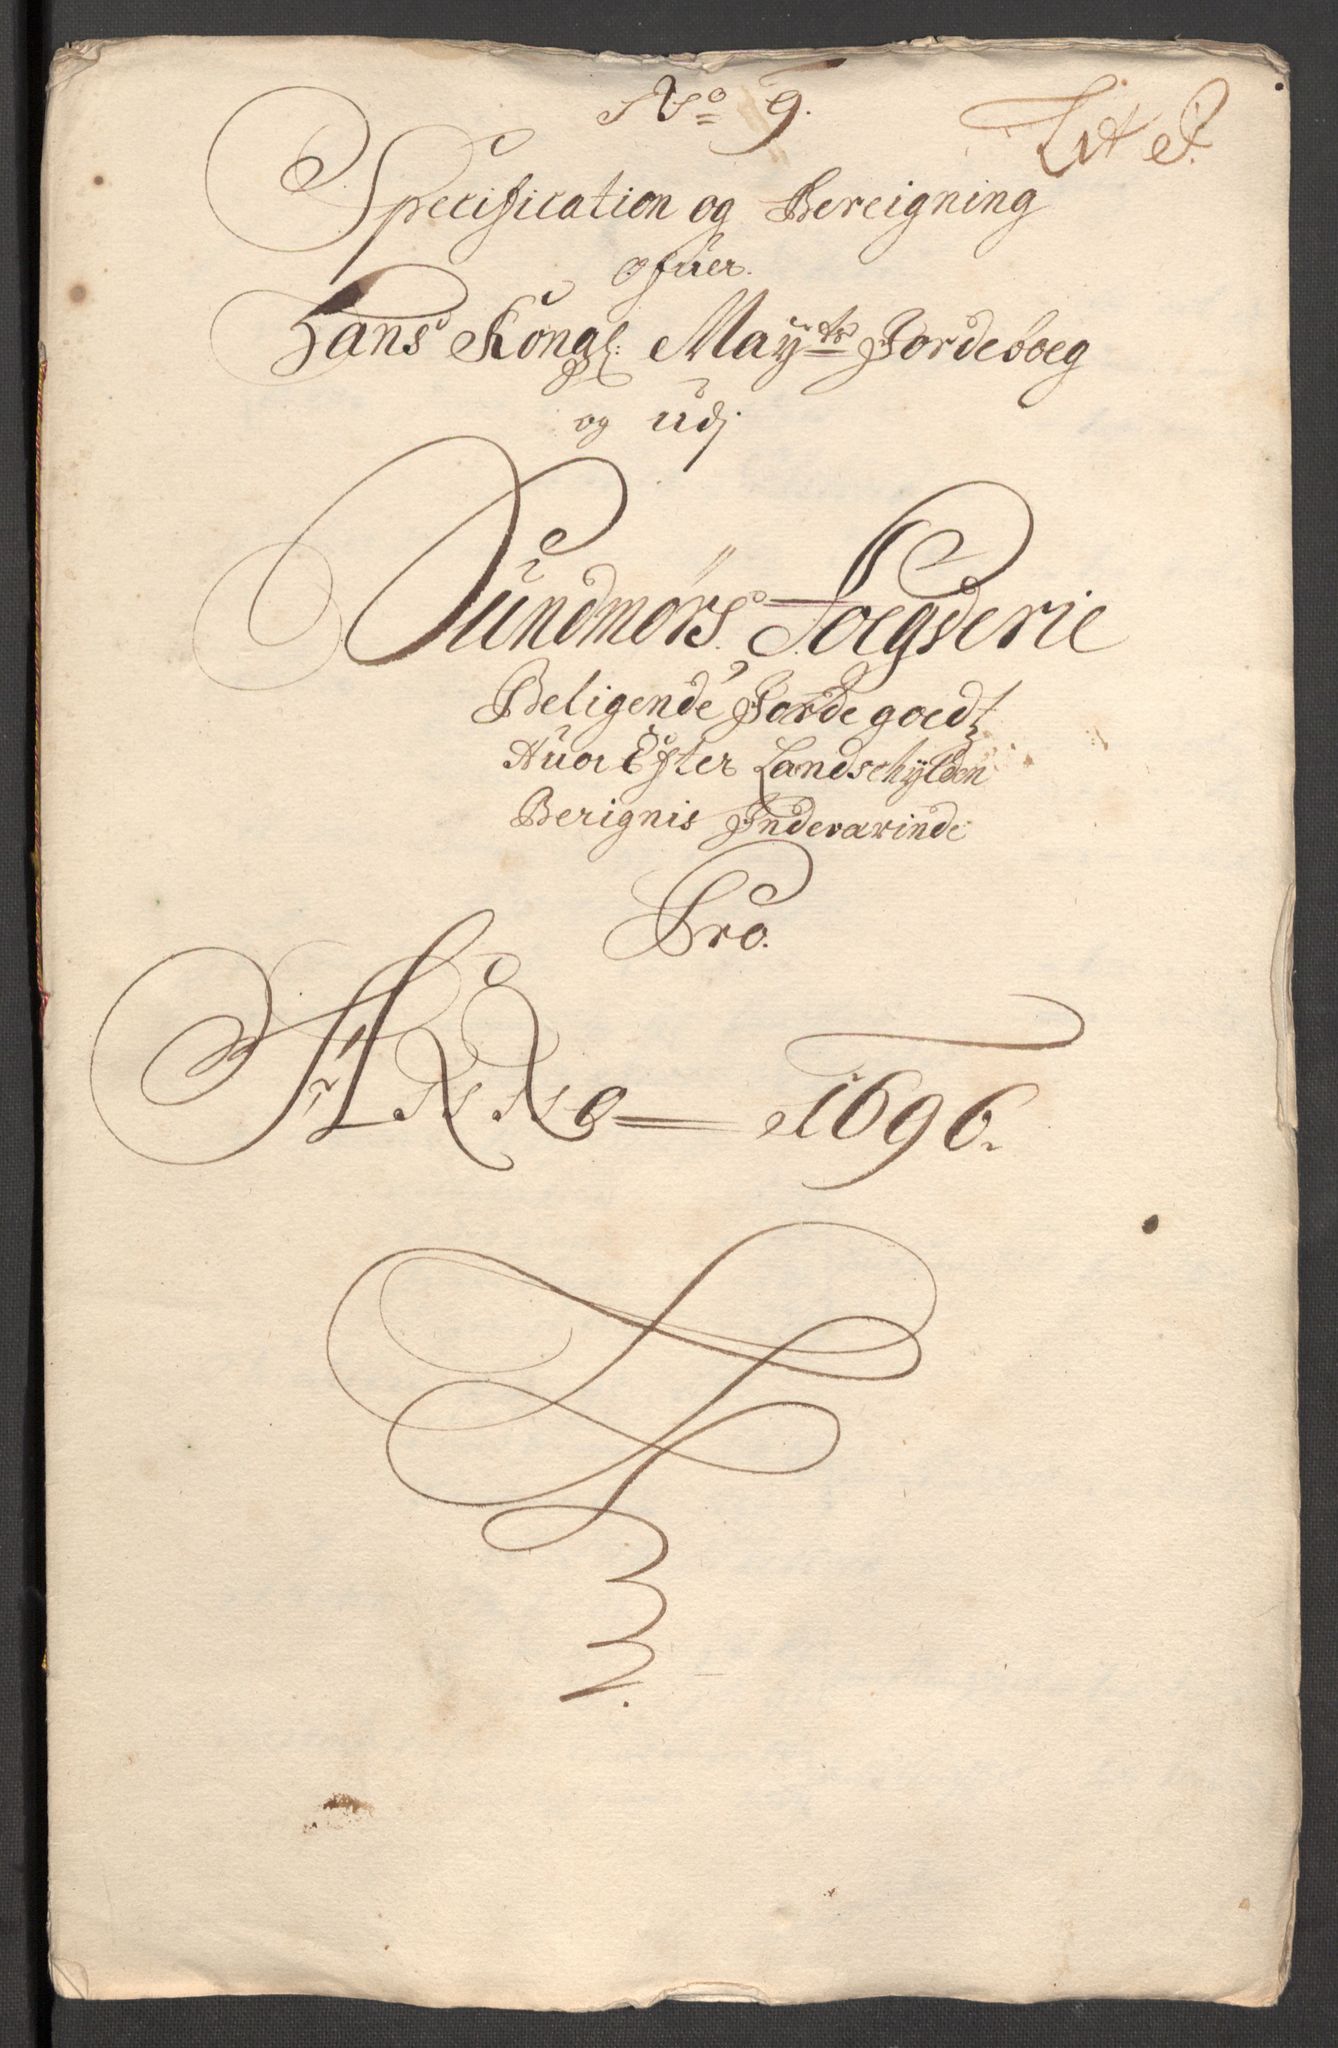 No 9.
Lit
Specification og Bereigning
ofuer.
Hans Kongl: Mayts Jordeboeg
og udj
Sundmørs Foegderie
Beligende Jordegoedtz
Huor Efter Landschylden
Berignis Indevarinde
Pro.
ANNo 1696.